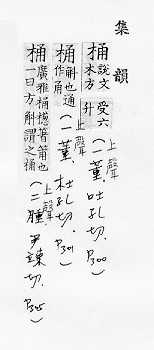 集韻
桶 說文木方受六升 (上聲 一董 吐孔切. P300)
桶 斛也通作甬 (上聲 一董 杜孔切. P301)
桶 廣雅桶檧箸筩也一曰方斛謂之桶 (上聲 二腫 尹竦切. P305)